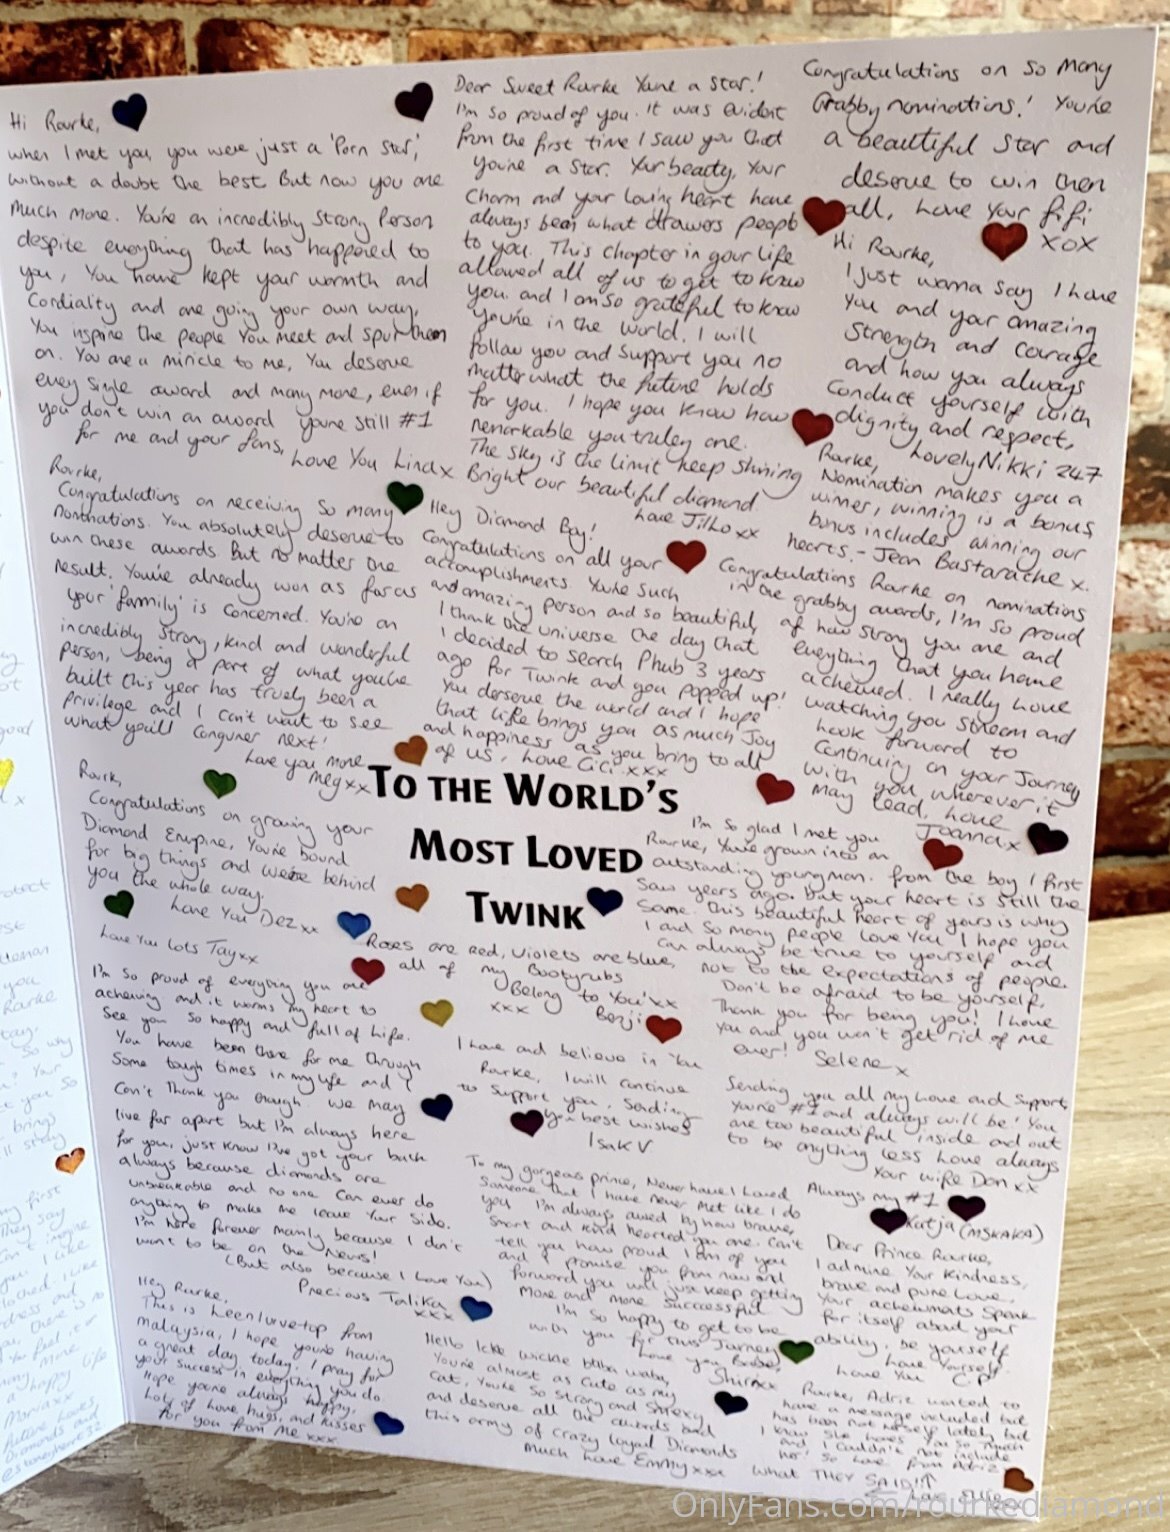 Hi Rourke,
when I met you, you were just a 'Porn Star',
without a doubt the best But now you are
Much more. You're an incredibly strong Person
despite everything that has happened to
you, You have kept your warmth and
Cordiality and are going your own way,
You inspire the people You meet and spur them
on. You are a miricle to me, You deserve
every single award and many more, even if
you don't win an award you're still #1
for me and your fans,
Love You Linda x
Rourke,
Congratulations on receiving So many
nominations. You absolutely deserve to
win these awards But no matter the
result, You're already won as far as
your 'family' is concerned. You're an
incredibly strong, kind and wonderful
person, being a part of what you've
built this year has truely been a
privilege and I can't wait to see
what you'll conquer next!
Love you more
Meg xx
Rourk,
Congratulations on growing your
Diamond Empire, You're bound
for big things and we're behind
you the whole way.
Love You Dez xx
Love You Lots Tay xx
I'm so proud of everything you are
acheiving and it warms my heart to
See you so happy and full of Life.
You have been there for me through
Some tough times in my life and I
Can't Thank you enough. We may
live far apart but I'm always here
for you, just know I've got your back
always because diamonds are
unbreakable and no one Can ever do
anything to make me leave Your side.
I'm here forever mainly because I don't
want to be on the News!
(But also because I Love You)
Precious Talika
xxx
Hey Rourke,
This is Leen/urve-top from
malaysia, I hope you're having
a great day today. I pray for
your success in everything you do
Hope you're always happy,
Lots of Love hugs, and kisses
for you from Me xxx
Dear Sweet Rourke You're a Star!
I'm so proud of you. It was evident
from the first time I saw you that
you're a Star. Your beauty, Your
Charm and your loving heart have
always been what drawers people
to you. This chapter in your life
allowed all of us to get to know
you. and I am so grateful to know
you're in the world. I will
follow you and Support you no
matter what the future holds
for you. I hope you know how
remarkable you truley are.
The sky is the limit keep shining
Bright our beautiful diamond.
Love JilLo xx
Hey Diamond Boy!
Congratulations on all your
accomplishments. You're such
an amazing person and so beautiful,
I thank the universe the day that
I decided to search Phub 3 years
ago for Twink and you popped up!
You deserve the world and I hope
that life brings you as much Joy
and happiness as you bring to all
of us, Love CiCi xxx
TO THE WORLD'S
MOST LOVED
TWINK
Roses are Red, Violets are blue,
all of my Bootyrubs
Belong to You'xx
xxx Benji
I Love and believe in You
Rourke, I will continue
to Support you, Sending
You best wishes
Isak V
To my gorgeous prince, Never have I Loved
Someone that I have never met like I do
you I'm always awed by how brave,
Smart and kind hearted you are. Can't
tell you how proud I am of you
and I promise you from now and
forward you will just keep getting
More and more successful
I'm So happy to get to be
with you for this Journey
Love you Babe,
Shir xx
Hello Ickle wickle bubba waba,
You're almost as cute as my
cat, You're So strong and Sexy
and deserve all the awards and
this army of crazy loyal Diamonds
Much Love Emmy xxx
Congratulations on So Many
Grabby nominations! You're
a beautiful Star and
deserve to win them
all, Love Your fifi
xox
Hi Rourke,
I just wanna Say I Love
You and your amazing
Strength and courage
and how you always
Conduct yourself with
dignity and respect,
Lovely Nikki 247
Rourke,
Nomination makes you a
winner, winning is a bonus,
bonus includes winning our
hearts. - Jean Bastarache x.
Congratulations Rourke on nominations
in the grabby awards, I'm so proud
of how strong you are and
everything that you have
acheived. I really love
watching you Stream and
Look forward to
Continuing on your Journey
with you wherever it
May Lead, Love
Joanna x
I'm so glad I met you
Rourke, You've grown into an
outstanding young man. from the boy I first
Saw years ago. but your heart is still the
Same. this beautiful heart of yours is why
I and So many people Love You I hope you
can always be true to yourself and
not to the expectations of people.
Don't be afraid to be yourself.
Thank you for being you! I Love
You and you won't get rid of me
ever! Selene x
Sending you all my Love and Support,
You're #1 and always will be! You
are too beautiful inside and out
to be anything less Love always
Your wife Dan xx
Always my #1
Katja (MSKAKA)
Dear Prince Rourke,
I admire Your Kindness,
brave and pure Love,
Your acheivments speak
for itself about your
ability, be yourself
Love Yourself
Love You C.P
Rourke, Adriz wanted to
have a message included but
has been not herself lately but
I know she loves You so much
and I couldn't not include
her! So Love from Adriz
what THEY SAID!!↑
Love Ellie
OnlyFans.com/rourkediamond